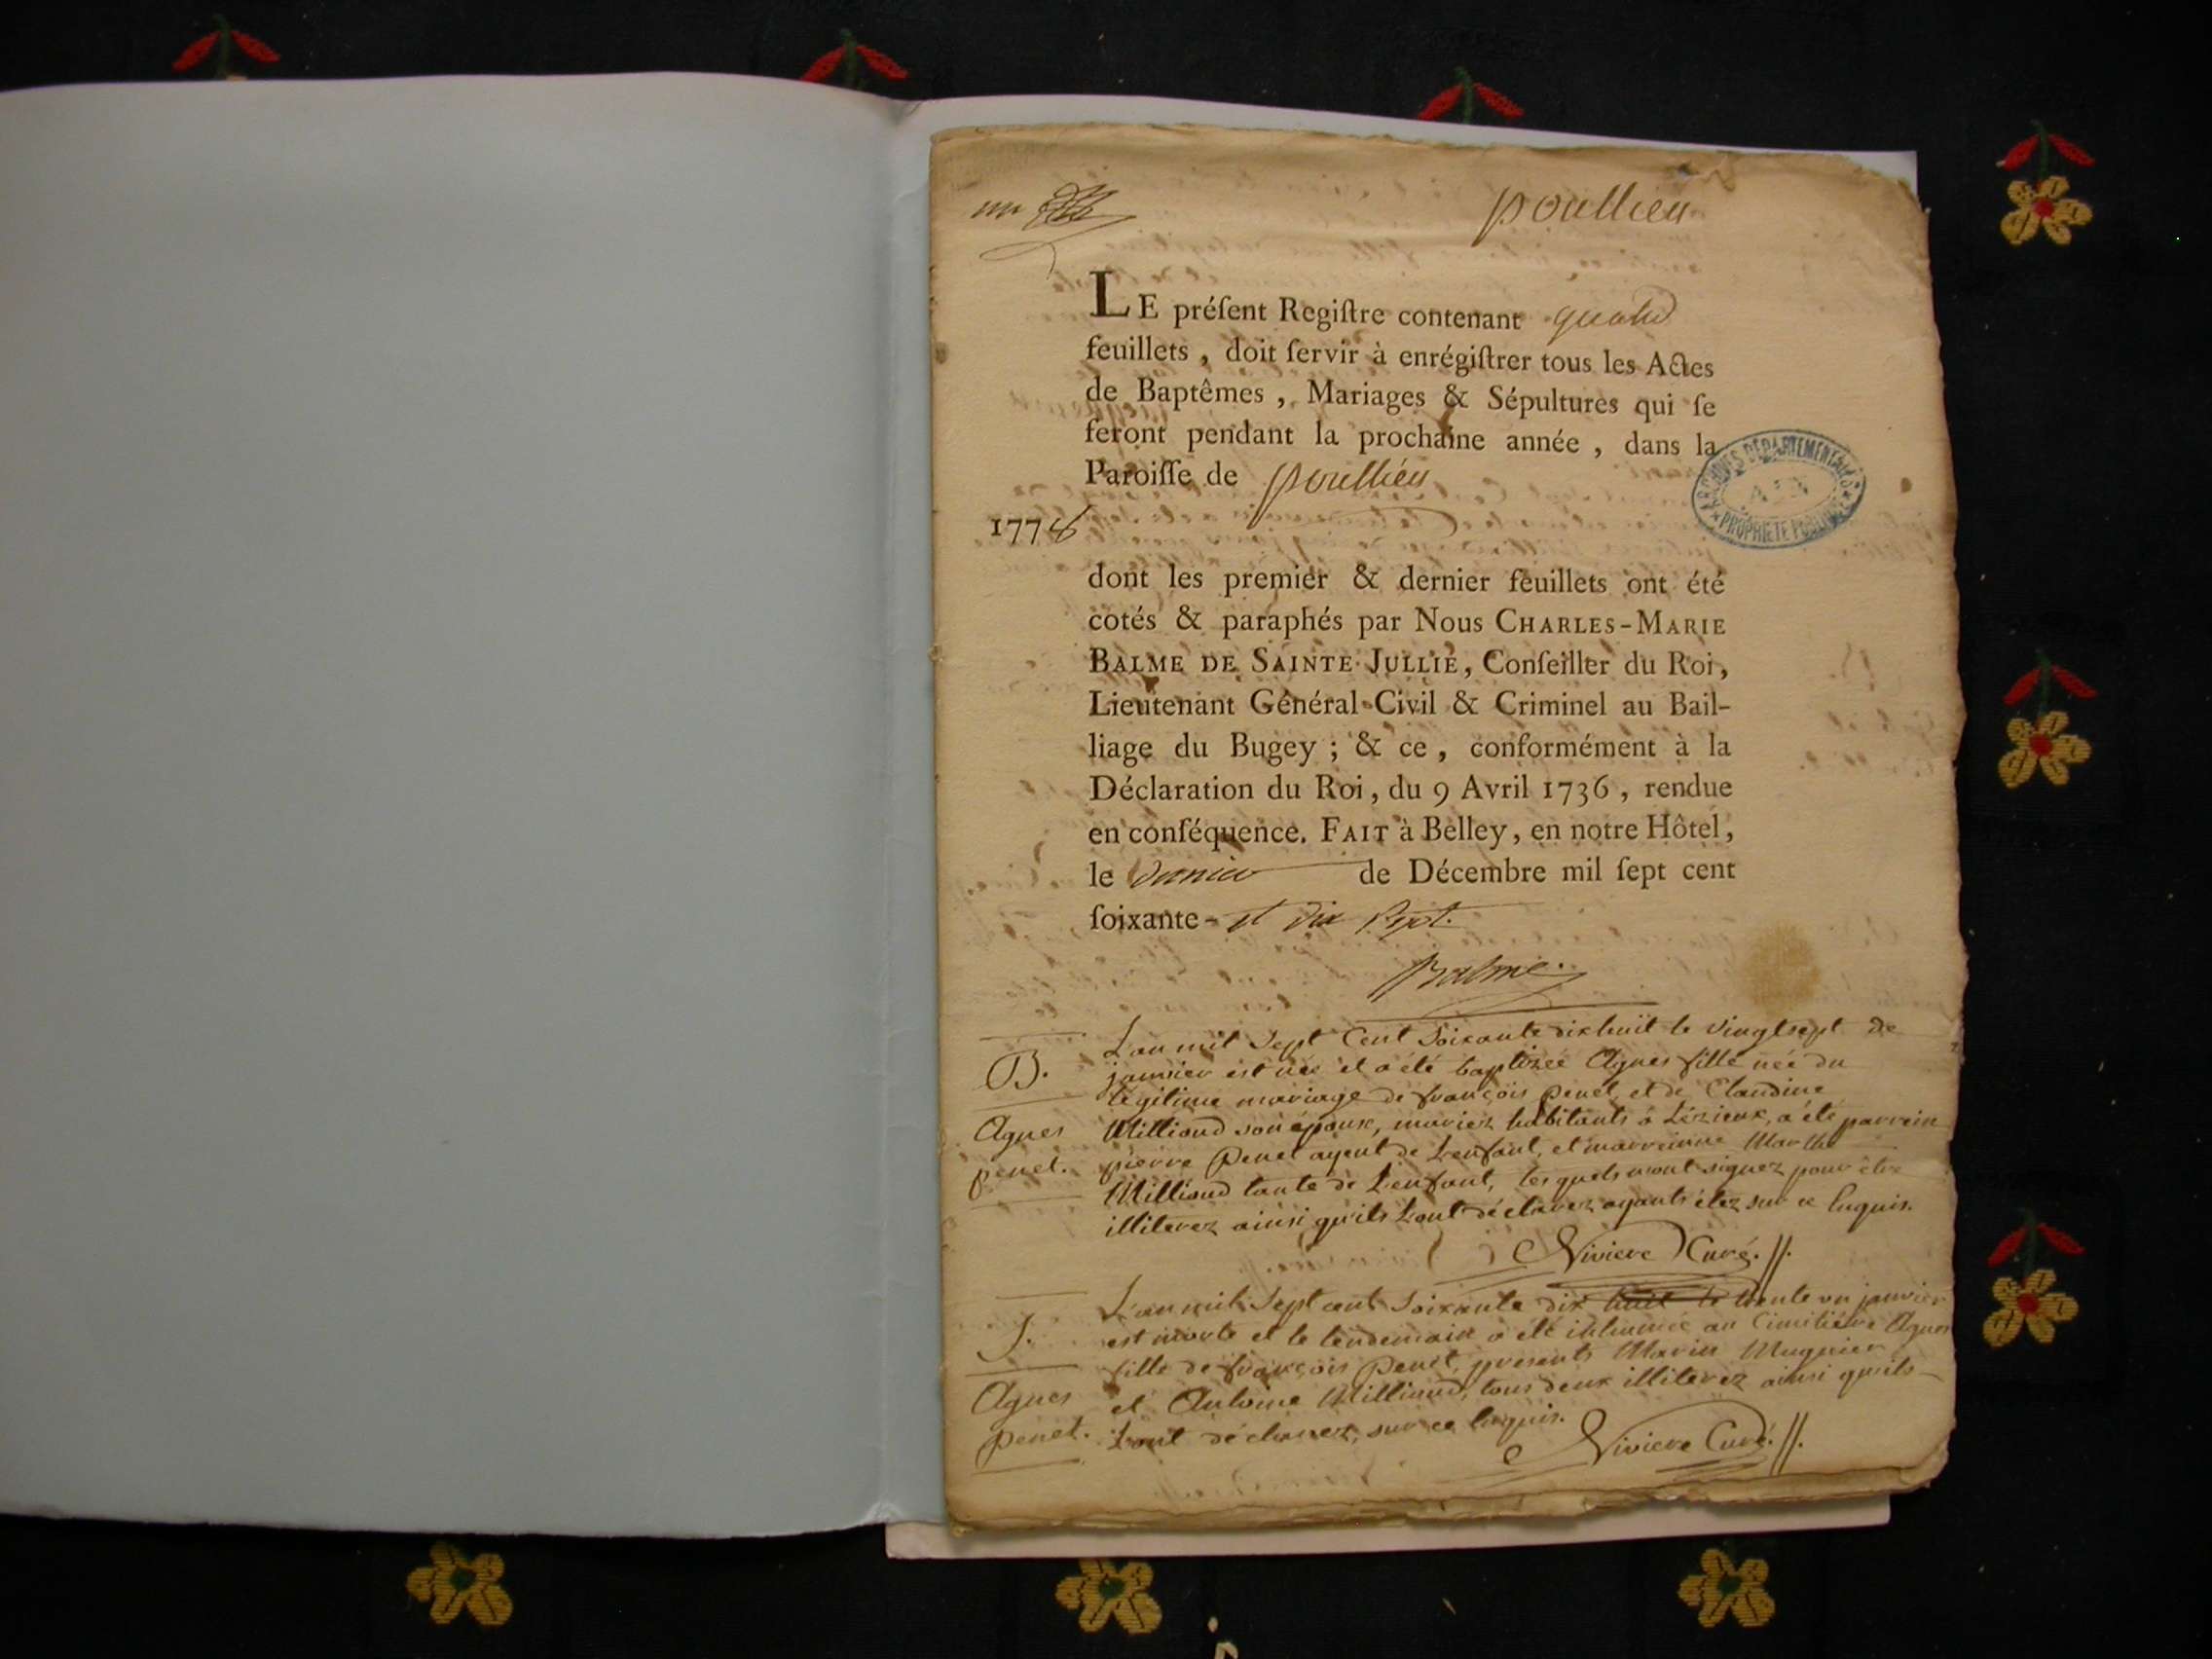 un
poullieu
LE préſent Regiſtre contenant quatre
feuillets, doit ſervir à enrégiſtrer tous les Actes
de Baptêmes, Mariages & Sépultures qui ſe
feront pendant la prochaine année, dans la
Paroiſſe de poullieu
ARCHIVES DÉPARTEMENTALES
AIN
PROPRIÉTÉ PUBLIQUE
1778
dont les premier & dernier feuillets ont été
cotés & paraphés par Nous CHARLES-MARIE
BALME DE SAINTE JULLIE, Conſeiller du Roi,
Lieutenant Général Civil & Criminel au Bail-
liage du Bugey ; & ce, conformément à la
Déclaration du Roi, du 9 Avril 1736, rendue
en conſéquence. FAIT à Belley, en notre Hôtel,
le dernier de Décembre mil ſept cent
ſoixante- et dix sept.
Balme.
B.
Agnes
penet.
L'an mil sept Cent Soixante dix huit le vingt sept de
janvier est née et a été baptizée Agnes fille née du
légitime mariage de françois penet, et de Claudine
Milliand son épouse, mariez habitants à Lézieux, a été parrein
pierre Penet ayeul de L'enfant, et marreinne Marthe
Milliand tante de L'enfant, lesquels n'ont signez pour être
illiterez ainsi qu'ils L'ont déclarez ayants étez sur ce Enquis.
Riviere Curé.
S.
Agnes
penet.
L'an mil sept cent Soixante dix huit le trente un janvier
est morte et le lendemain a été inhumée au Cimitière Agnes
fille de françois Penet, presents Marin Mugnier
et Antoine Milliand, tous deux illiterez ainsi qu'ils
L'ont déclarez, sur ce Enquis.
Riviere Curé.